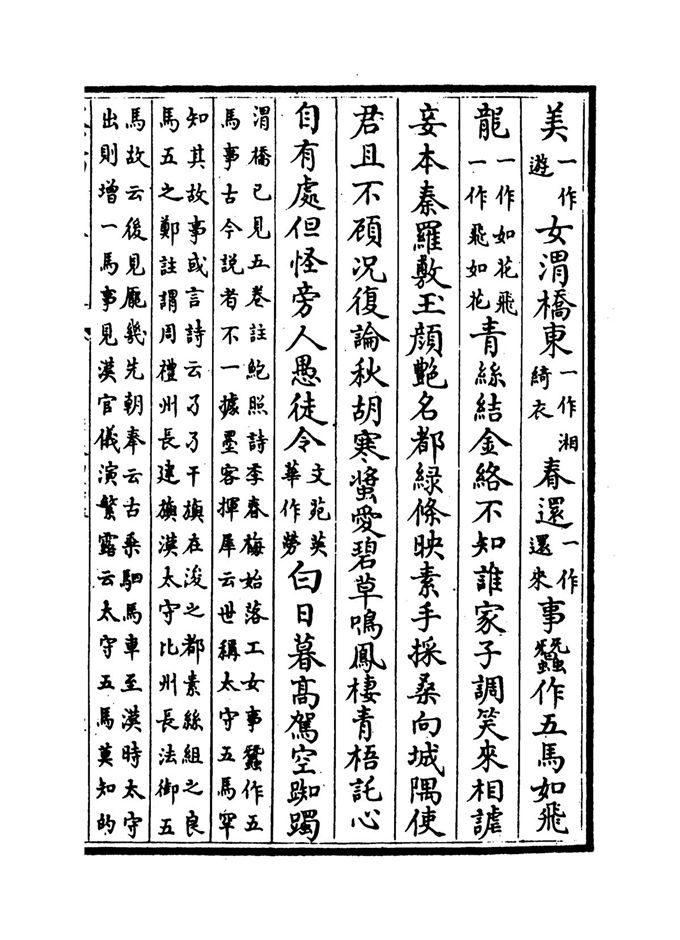 美一作遊女渭橋東一作湘綺衣春還一作還來事蠶作五馬如飛
龍一作如花飛一作飛如花青絲結金絡不知誰家子調笑來相謔
妾本秦羅敷玉顔艶名都緑條映素手採桑向城隅使
君且不顧況復論秋胡寒螿愛碧草鳴鳳棲青梧託心
自有處但怪旁人愚徒令文苑英華作勞白日暮高駕空踟躅
渭橋已見五卷註鮑照詩季春梅始落工女事蠶作五
馬事古今説者不一據墨客揮犀云世稱太守五馬罕
知其故事或言詩云孑孑干旟在浚之都素絲組之良
馬五之鄭註謂周禮州長建旟漢太守比州長法御五
馬故云後見龎幾先朝奉云古乘駟馬車至漢時太守
出則增一馬事見漢官儀演繁露云太守五馬莫知的